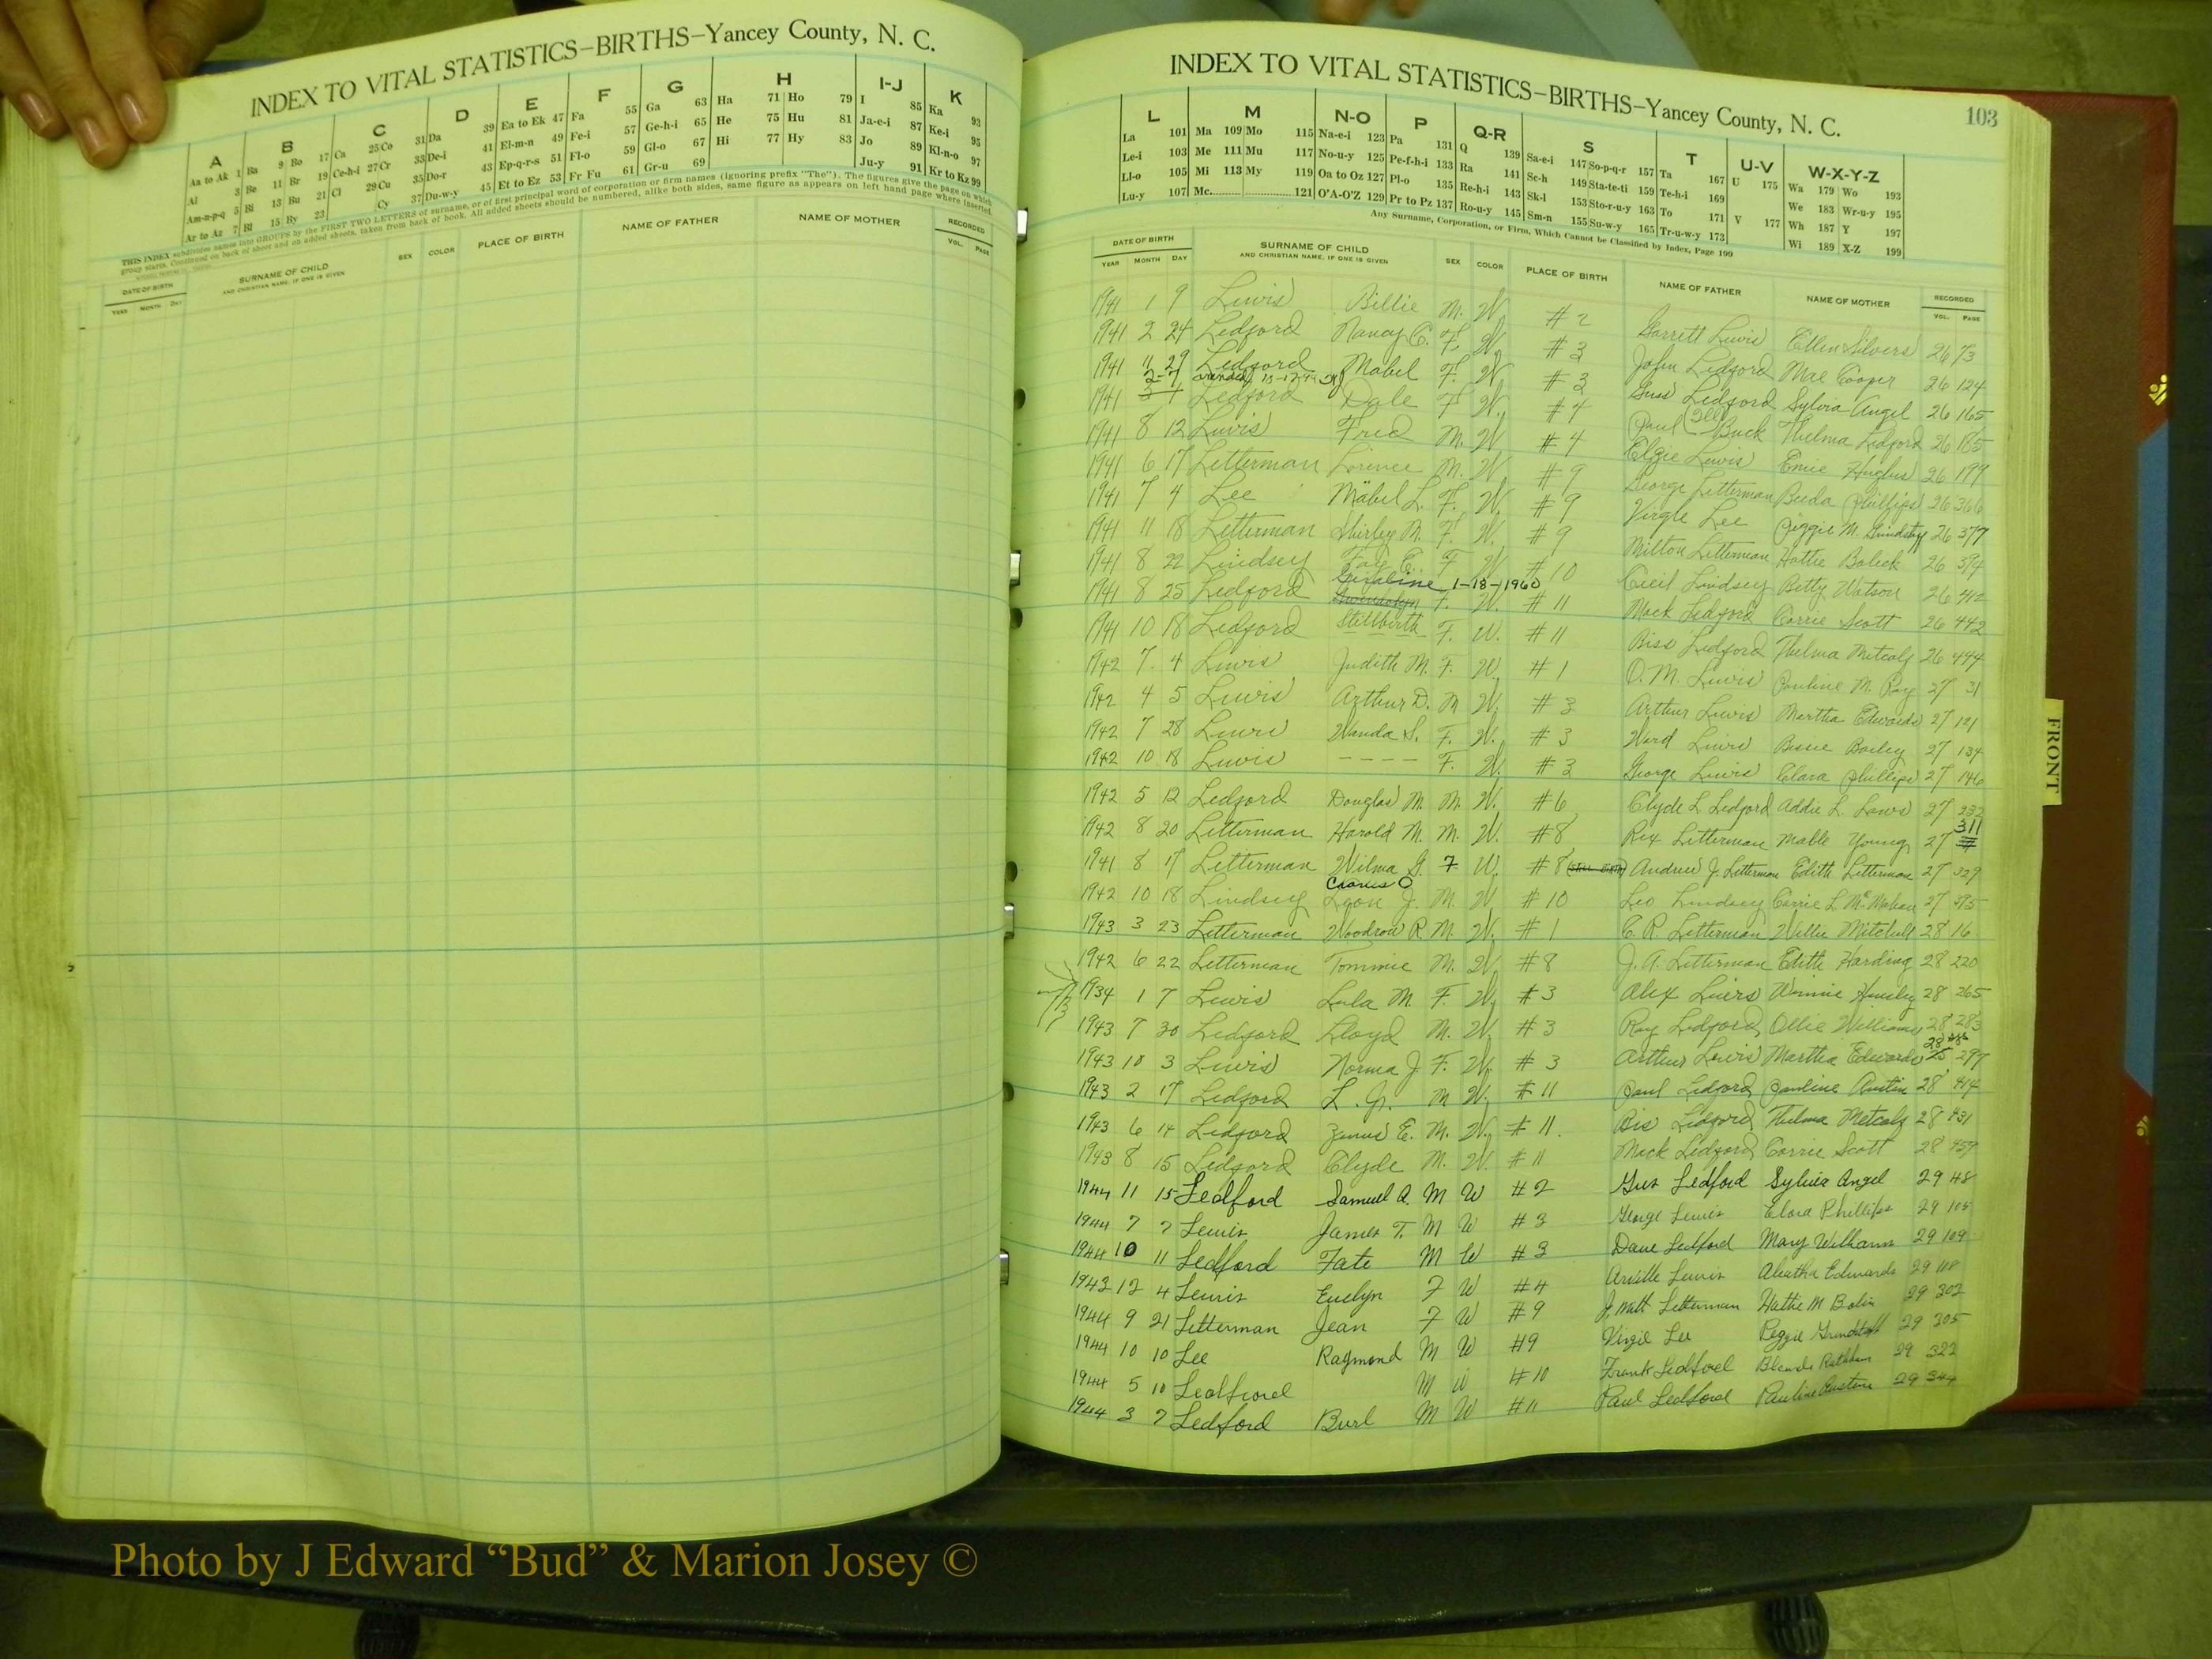 INDEX TO VITAL STATISTICS—BIRTHS—Yancey County, N. C.
A B C D E F G H I-J K
Aa to Ak 1 Ba 9 Bo 17 Ca 25 Co 31 Da 39 Ea to Ek 47 Fa 55 Ga 63 Ha 71 Ho 79 I 85 Ka 93
Al 3 Be 11 Br 19 Ce-h-i 27 Cr 33 De-i 41 El-m-n 49 Fe-i 57 Ge-h-i 65 He 75 Hu 81 Ja-e-i 87 Ke-i 95
Am-n-p-q 5 Bi 13 Bu 21 Cl 29 Cu 35 Do-r 43 Ep-q-r-s 51 Fl-o 59 Gl-o 67 Hi 77 Hy 83 Jo 89 Kl-n-o 97
Ar to Az 7 Bl 15 By 23 Cy 37 Du-w-y 45 Et to Ez 53 Fr Fu 61 Gr-u 69 Ju-y 91 Kr to Kz 99
THIS INDEX subdivides names into GROUPS by the FIRST TWO LETTERS of surname, or of first principal word of corporation or firm names (ignoring prefix "The"). The figures give the page on which
group starts. Continued on back of sheet and on added sheets, taken from back of book. All added sheets should be numbered, alike both sides, same figure as appears on left hand page where inserted.
DATE OF BIRTH SURNAME OF CHILD SEX COLOR PLACE OF BIRTH NAME OF FATHER NAME OF MOTHER RECORDED
YEAR MONTH DAY AND CHRISTIAN NAME, IF ONE IS GIVEN VOL. PAGE
INDEX TO VITAL STATISTICS—BIRTHS—Yancey County, N. C.
103
L M N-O P Q-R S T U-V W-X-Y-Z
La 101 Ma 109 Mo 115 Na-e-i 123 Pa 131 Q 139 Sa-e-i 147 So-p-q-r 157 Ta 167 U 175 Wa 179 Wo 193
Le-i 103 Me 111 Mu 117 No-u-y 125 Pe-f-h-i 133 Ra 141 Sc-h 149 Sta-te-ti 159 Te-h-i 169 We 183 Wr-u-y 195
Ll-o 105 Mi 113 My 119 Oa to Oz 127 Pl-o 135 Re-h-i 143 Sk-l 153 Sto-r-u-y 163 To 171 V 177 Wh 187 Y 197
Lu-y 107 Mc 121 O'A-O'Z 129 Pr to Pz 137 Ro-u-y 145 Sm-n 155 Su-w-y 165 Tr-u-w-y 173 Wi 189 X-Z 199
Any Surname, Corporation, or Firm, Which Cannot be Classified by Index, Page 199
DATE OF BIRTH SURNAME OF CHILD SEX COLOR PLACE OF BIRTH NAME OF FATHER NAME OF MOTHER RECORDED
YEAR MONTH DAY AND CHRISTIAN NAME, IF ONE IS GIVEN VOL. PAGE
1941 1 9 Lewis Billie M. W. #2 Garrett Lewis Ellen Silvers 26 73
1941 2 24 Ledford Nancy C. F. W. #3 John Ledford Mae Cooper 26 124
1941 11 29 Ledford Mabel F. W #3 Gus Ledford Sylvia Angel 26 165
2-7
1941 Ledford Dale F W. #4 Paul Buck Thelma Ledford 26 185
1941 8 12 Lewis Fred M. W #4 Elzie Lewis Hughes 26 199
1941 6 17 Letterman Lorince M. W. #9 George Letterman Beeda Phillips 26 366
1941 7 4 Lee Mabel L. F. W. #9 Virgle Lee Peggie M. Grindstaff 26 377
1941 11 18 Letterman Shirley M. F. W. #9 Milton Letterman Hattie 26 394
1941 8 22 Lindsey Fay E. F W #10 Cecil Lindsey Betty Watson 26 412
Geraline 1-18-1960
1941 8 25 Ledford Gwendolyn F. W. #11 Mack Ledford Carrie Scott 26 442
1941 10 18 Ledford Stillbirth F. W. #11 Biss Ledford Thelma Metcalf 26 444
1942 7 4 Lewis Judith M. F. W. #1 O. M. Lewis Pauline M. Ray 27 31
1942 4 5 Lewis Arthur D. M W. #3 Arthur Lewis Martha Edwards 27 121
1942 7 28 Lewis Wanda S. F. W. #3 Ward Lewis Bessie Bailey 27 134
1942 10 18 Lewis ---- F. W. #3 George Lewis Clara Phillips 27 146
1942 5 12 Ledford Douglas M. M. W. #6 Clyde L. Ledford Addie L. Laws 27 232
1942 8 20 Letterman Harold M. M. W. #8 Rex Letterman Mable Young 27 311
1941 8 17 Letterman Wilma G. F W. #8 Andrew J. Letterman Edith Letterman 27 329
Charles O
1942 10 18 Lindsey Leon J. M. W. #10 Leo Lindsey Carrie L. McMahan 27 395
1943 3 23 Letterman Woodrow R. M. W. #1 C. R. Letterman Willie Mitchell 28 16
1942 6 22 Letterman Tommie M. W. #8 J. A. Letterman Edith Harding 28 220
1934 1 7 Lewis Lula M. F. W. #3 Alex Lewis Winnie Hensley 28 265
1943 7 30 Ledford Lloyd M. W. #3 Roy Ledford Ollie Williams 28 283
1943 10 3 Lewis Norma J. F. W. #3 Arthur Lewis Martha Edwards 28 297
1943 2 17 Ledford L. G. M W. #11 Paul Ledford Pauline Austin 28 414
1943 6 14 Ledford E. M. W. #11. Bis Ledford Thelma Metcalf 28 431
1943 8 15 Ledford Clyde M. W. #11 Mack Ledford Carrie Scott 28 459
1944 11 15 Ledford Samuel A. M W #2 Gus Ledford Sylvia Angel 29 48
1944 7 7 Lewis James T. M W #3 George Lewis Elora Phillips 29 105
1944 10 11 Ledford Fate M W #3 Dave Ledford Mary Williams 29 109
1943 12 4 Lewis Evelyn F W #4 Lewis Aleatha Edwards 29 118
1944 9 21 Letterman Jean F W #9 J. Milt Letterman Hattie M Bolin 29 302
1944 10 10 Lee Raymond M W #9 Virgil Lee Peggie Grindstaff 29 305
1944 5 10 Ledford M W #10 Frank Ledford 29 322
1944 3 7 Ledford Burl M W #11 Paul Ledford Pauline Austin 29 344
FRONT
Photo by J Edward “Bud” & Marion Josey ©